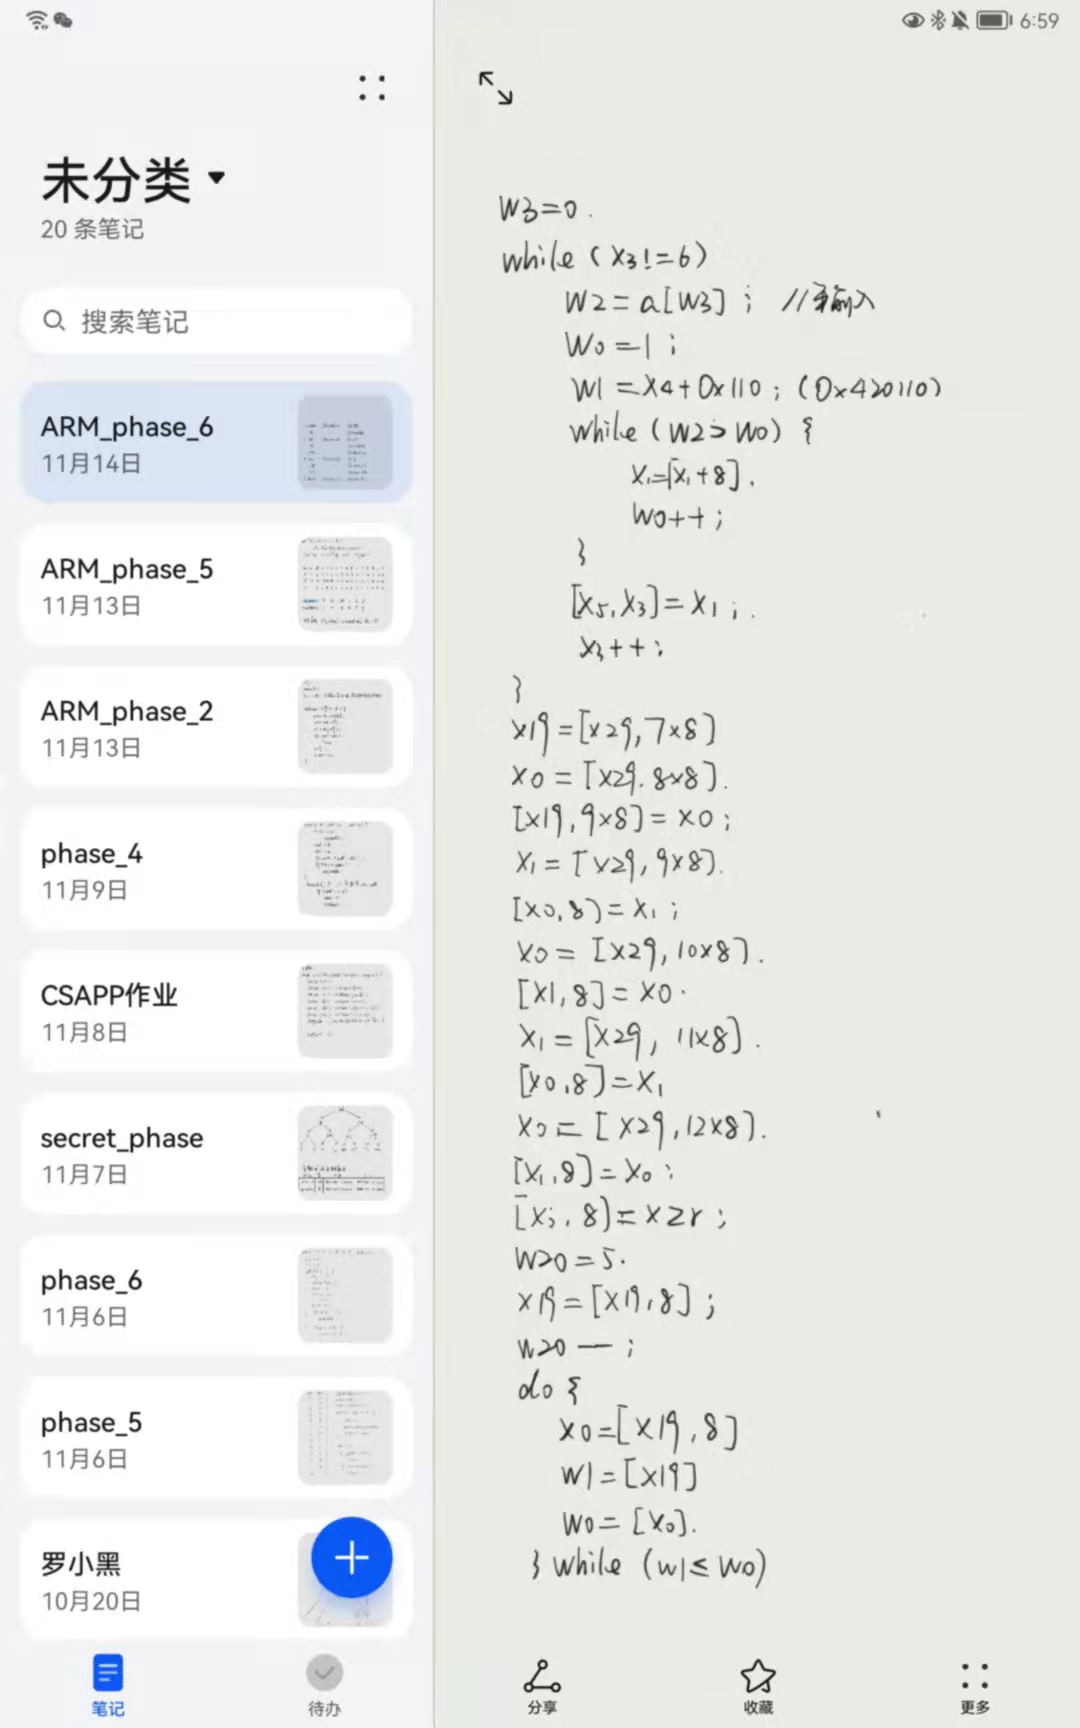 6:59
未分类
20 条笔记
搜索笔记
ARM_phase_6
11月14日
ARM_phase_5
11月13日
ARM_phase_2
11月13日
phase_4
11月9日
CSAPP作业
11月8日
secret_phase
11月7日
phase_6
11月6日
phase_5
11月6日
罗小黑
10月20日
笔记
待办
W3=0.
while (X3!=6)
W2=a[W3]; //输入
W0=1;
W1=X4+0x110; (0x420110)
while (W2>W0) {
X1=[X1+8].
W0++;
}
[X5,X3]=X1;.
X3++;
}
X19=[X29,7×8]
X0=[X29.8×8].
[X19,9×8]=X0;
X1=[X29,9×8].
[X0,8)=X1;
X0=[X29,10×8].
[X1,8]=X0.
X1=[X29,11×8].
[X0.8]=X1
X0=[X29,12×8].
[X1.8]=X0;
8)=
W20=5.
X19=[X19,8];
W20—;
do {
X0=[X19,8]
W1=[X19]
W0=[X0].
} while (W1≤W0)
分享
收藏
更多